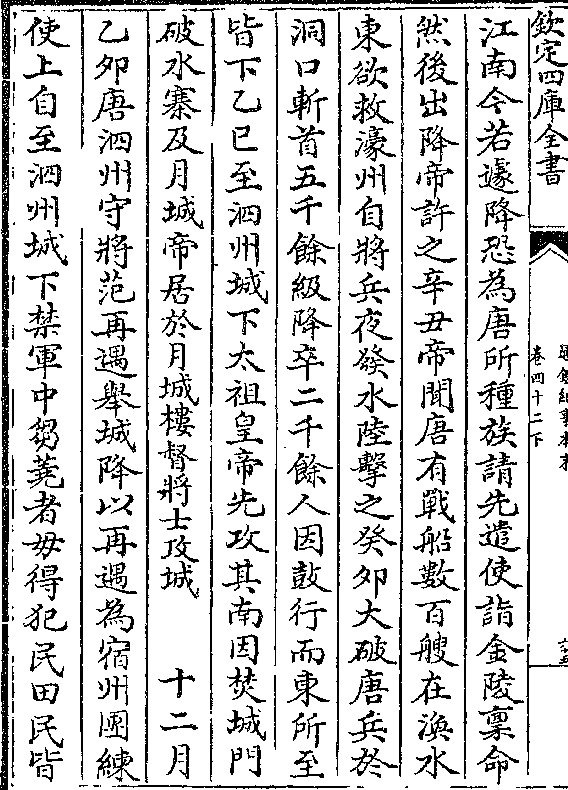 欽定四庫全書
通鑑紀事本末
卷四十二下
江南今若遽降恐為唐所種族請先遣使詣金陵稟命
然後出降帝許之辛丑帝聞唐有戰船數百艘在渙水
東欲救濠州自將兵夜發水陸擊之癸卯大破唐兵於
洞口斬首五千餘級降卒二千餘人因鼓行而東所至
皆下乙巳至泗州城下太祖皇帝先攻其南因焚城門
破水寨及月城帝居於月城樓督將士攻城　十二月
乙卯唐泗州守將范再遇舉城降以再遇為宿州團練
使上自至泗州城下禁軍中芻蕘者毋得犯民田民皆